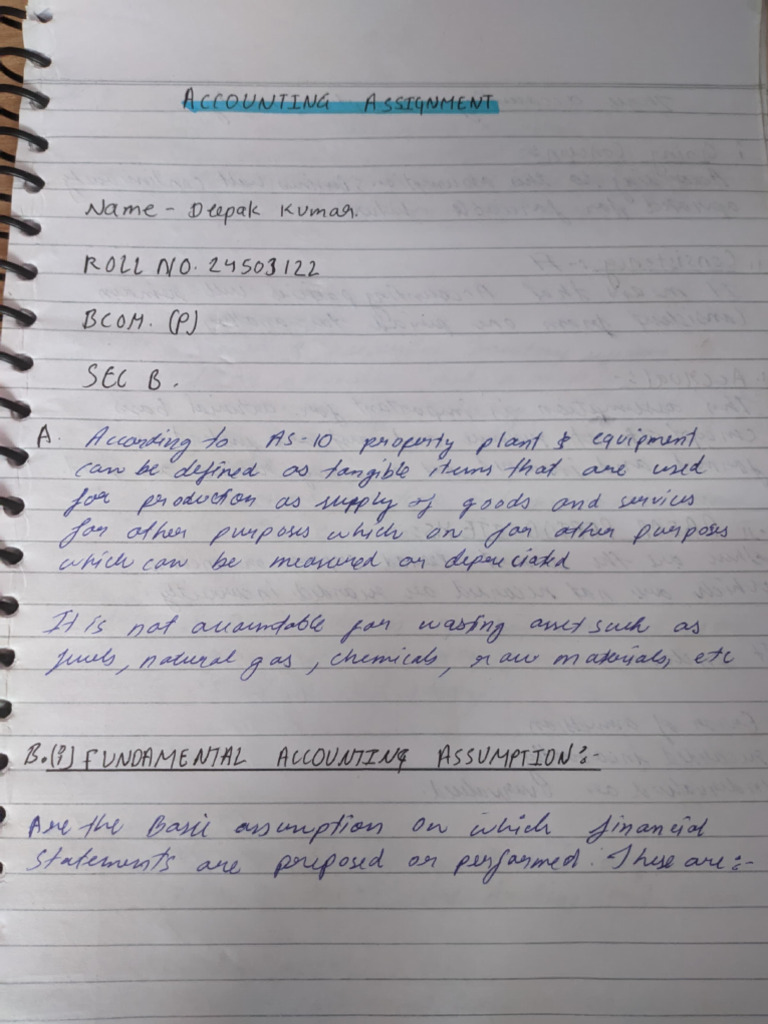 ACCOUNTING ASSIGNMENT
Name - Deepak Kumar.
ROLL NO. 24503122
BCOM. (P)
SEC B.
A. According to AS-10 property plant & equipment
can be defined as tangible items that are used
for production as supply of goods and services
for other purposes which on for other purposes
which can be measured or depreciated
It is not accountable for wasting asset such as
fuels, natural gas, chemicals, raw materials, etc
B.(i) FUNDAMENTAL ACCOUNTING ASSUMPTION:-
Are the Basic assumption on which financial
statements are preposed or performed. These are:-